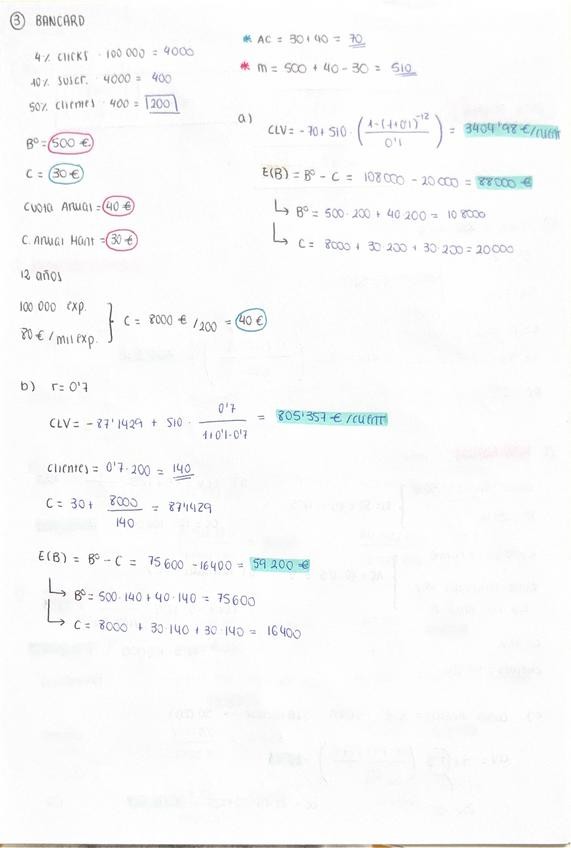 ③ BANCARD
4% CLICKS · 100 000 = 4000
10% SUSCR. · 4000 = 400
50% Clientes · 400 = 200
Bº = 500 €
C = 30 €
Cuota Anual = 40 €
C. Anual Mant = 30 €
12 años
100 000 exp.
80 € / mil exp.
C = 8000 € /200 = 40 €
* AC = 30+40 = 70
* m = 500 + 40 - 30 = 510
a)
CLV = -70 + 510 · ( 1-(1+0'1)^-12 / 0'1 ) = 3404'98 €/client
E(B) = Bº - C = 108 000 - 20 000 = 88 000 €
↳ Bº = 500 · 200 + 40 · 200 = 108000
↳ C = 8000 + 30 · 200 + 30 · 200 = 20000
b) r = 0'7
CLV = -87'1429 + 510 · 0'7 / 1+0'1-0'7 = 805'357 € /client
Clientes = 0'7 · 200 = 140
C = 30 + 8000 / 140 = 871429
E(B) = Bº - C = 75 600 - 16400 = 59 200 €
↳ Bº = 500 · 140 + 40 · 140 = 75600
↳ C = 8000 + 30 · 140 + 30 · 140 = 16400